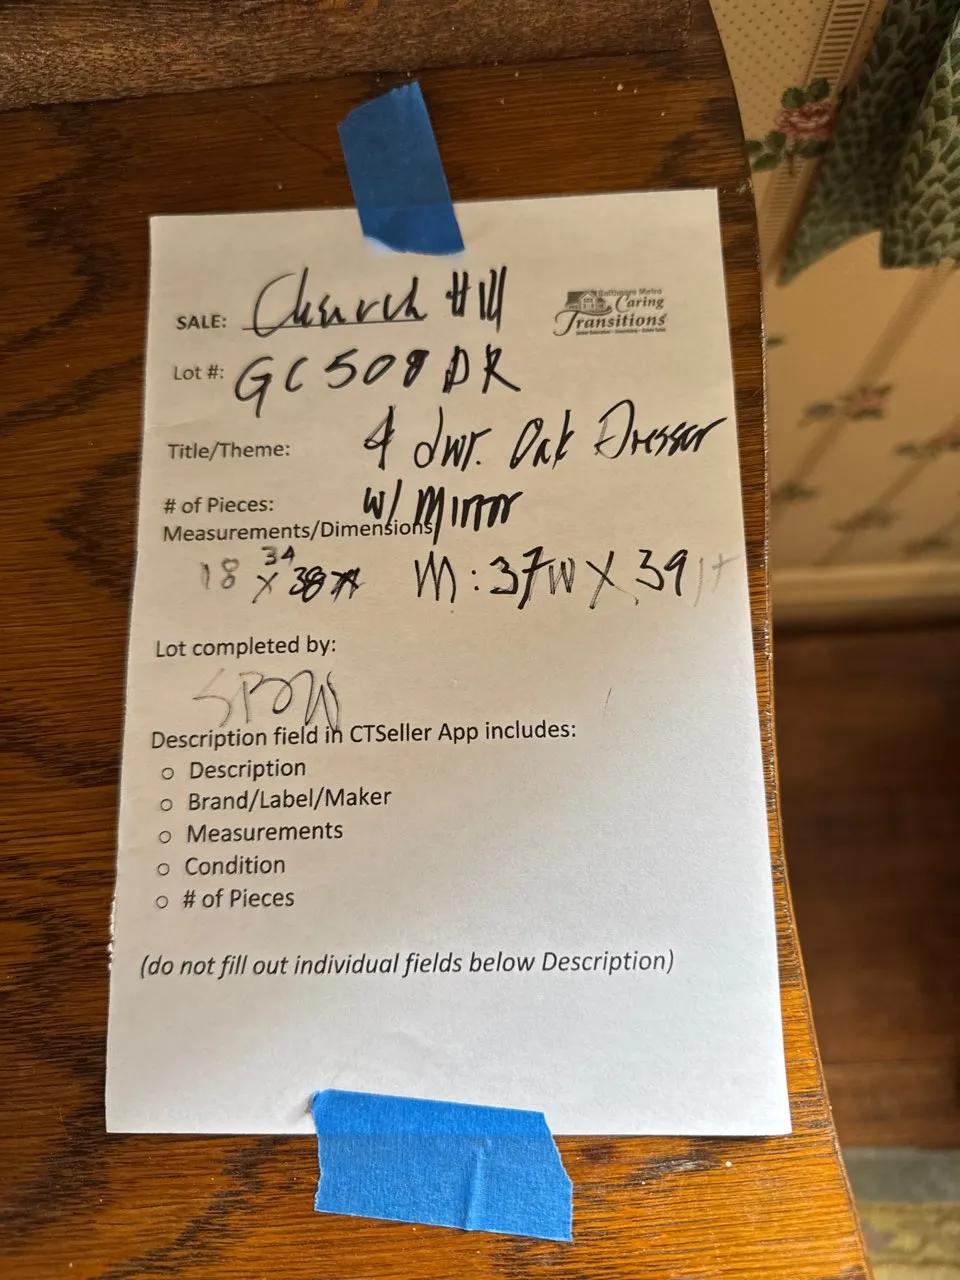 SALE: Church Hill
Baltimore Metro
Caring
Transitions
Lot #: GC508 DR
Title/Theme: 4 dwr. Oak Dresser
# of Pieces: w/ Mirror
Measurements/Dimensions
34
18 x 38 M: 37W X 39H
Lot completed by:
Description field in CTSeller App includes:
○ Description
○ Brand/Label/Maker
○ Measurements
○ Condition
○ # of Pieces
(do not fill out individual fields below Description)